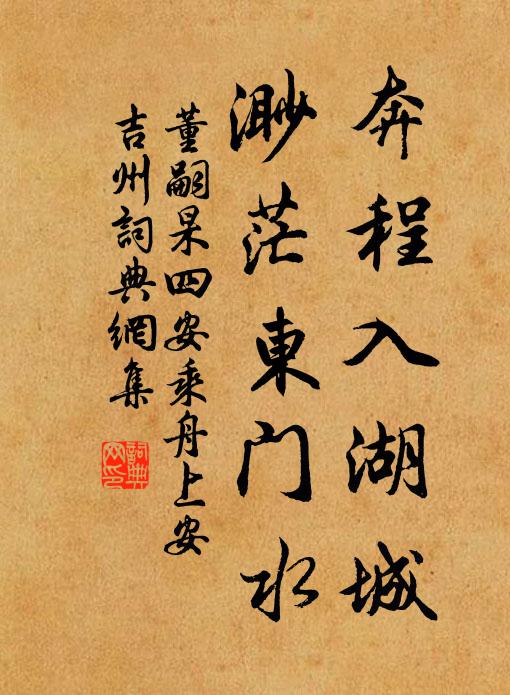 奔程入湖城
渺茫東門水
董嗣杲四安乘舟上安
吉州詞典網集
詞典
网印